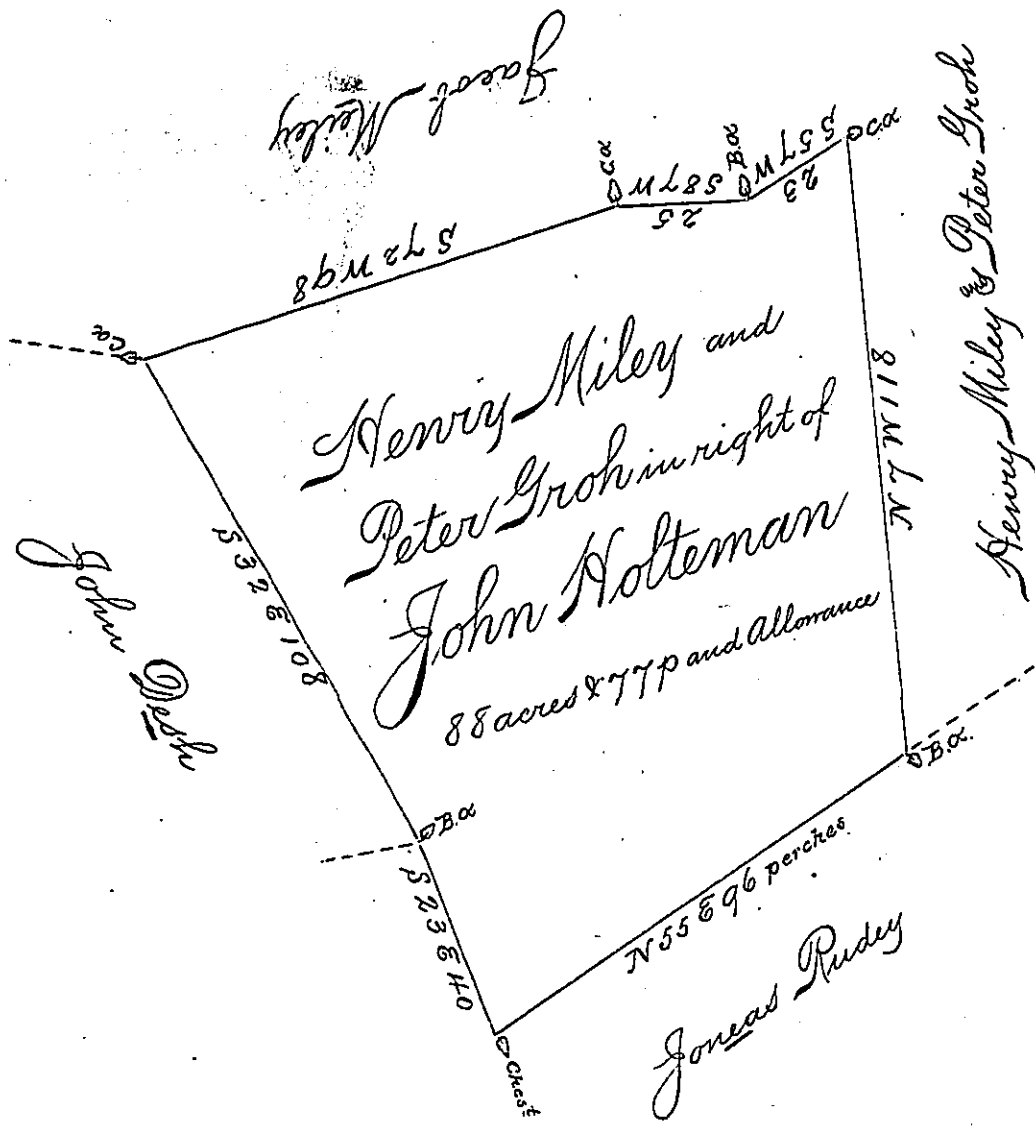 Jacob Meiley
S 57 W
23
B.O.
S 87 W
25
S 72 W 98
Henry Miley & Peter Groh
N 7 W 118
Henry Miley and
Peter Groh in right of
John Holteman
88 acres & 77 p and Allowance
John Desh
S 32 E 108
B.O.
S 23 E 40
Chest
N 55 E 96 perches
B.O.
Joneas Rudey